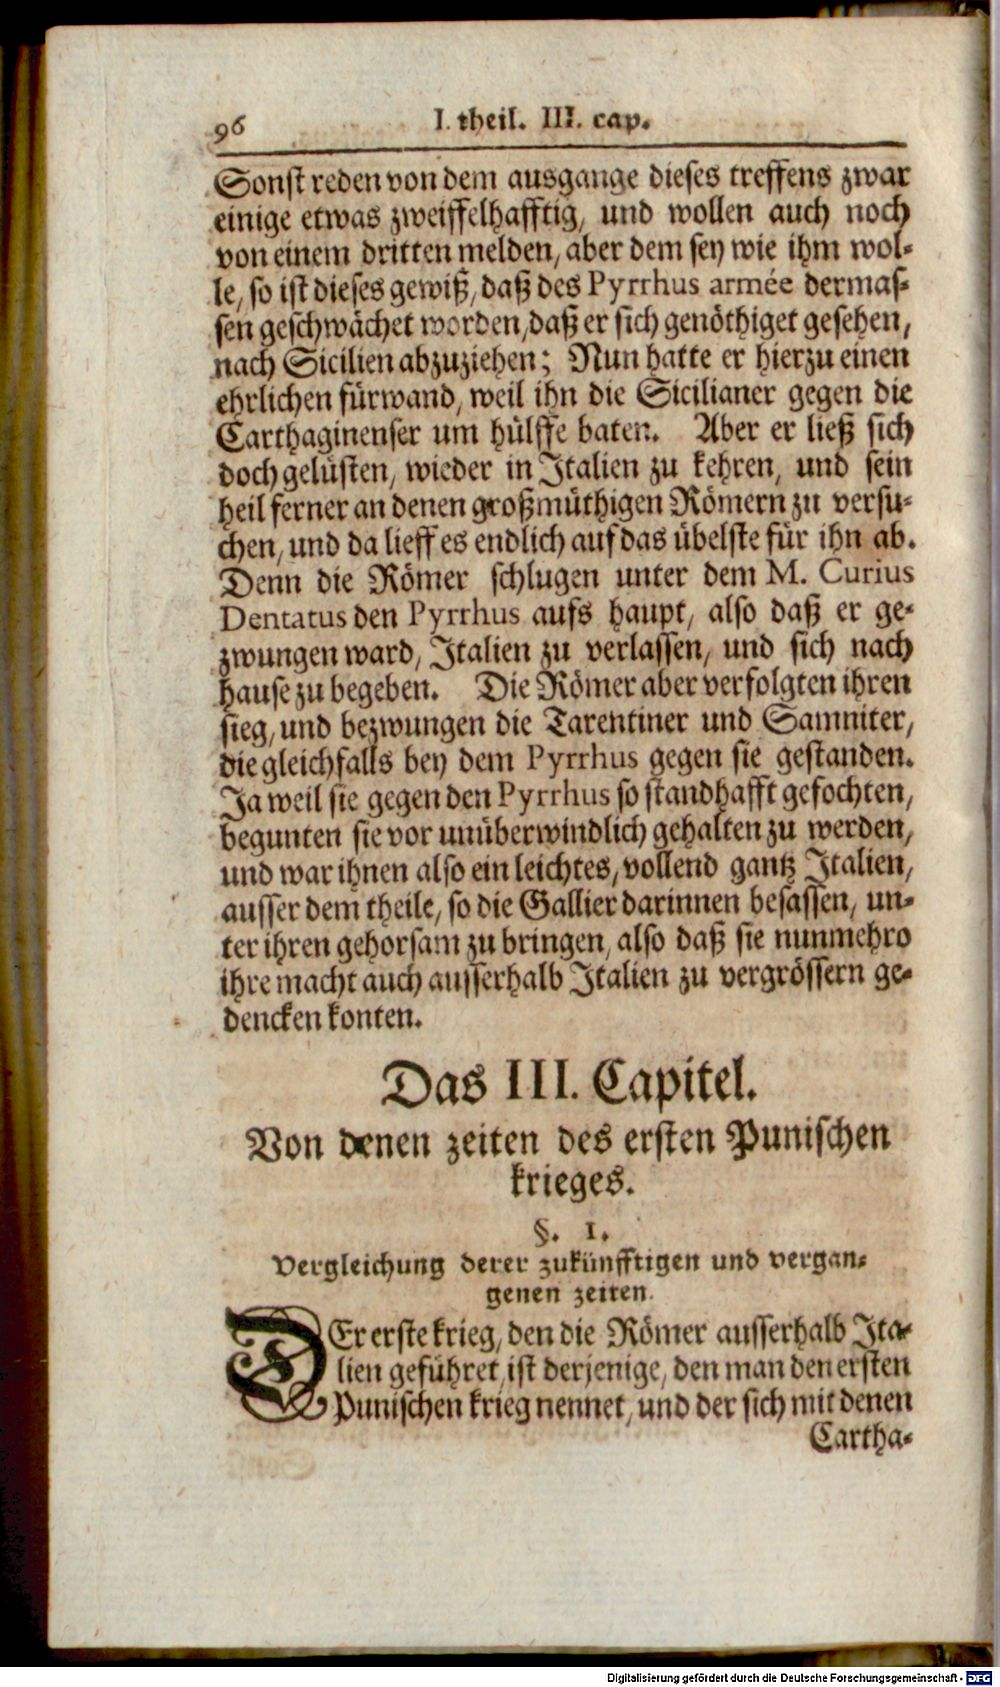 96 I. theil. III. cap.
Sonst reden von dem ausgange dieses treffens zwar
einige etwas zweiffelhafftig, und wollen auch noch
von einem dritten melden, aber dem sey wie ihm wol-
le, so ist dieses gewiß, daß des Pyrrhus armée dermas-
sen geschwächet worden, daß er sich genöthiget gesehen,
nach Sicilien abzuziehen; Nun hatte er hierzu einen
ehrlichen fürwand, weil ihn die Sicilianer gegen die
Carthaginenser um hülffe baten. Aber er ließ sich
doch gelüsten, wieder in Italien zu kehren, und sein
heil ferner an denen großmüthigen Römern zu versu-
chen, und da lieff es endlich auf das übelste für ihn ab.
Denn die Römer schlugen unter dem M. Curius
Dentatus den Pyrrhus aufs haupt, also daß er ge-
zwungen ward, Italien zu verlassen, und sich nach
hause zu begeben. Die Römer aber verfolgten ihren
sieg, und bezwungen die Tarentiner und Samniter,
die gleichfalls bey dem Pyrrhus gegen sie gestanden.
Ja weil sie gegen den Pyrrhus so standhafft gefochten,
begunten sie vor unüberwindlich gehalten zu werden,
und war ihnen also ein leichtes, vollend gantz Italien,
ausser dem theile, so die Gallier darinnen besassen, un-
ter ihren gehorsam zu bringen, also daß sie nunmehro
ihre macht auch ausserhalb Italien zu vergrössern ge-
dencken konten.
Das III. Capitel.
Von denen zeiten des ersten Punischen
krieges.
§. 1.
Vergleichung derer zukünfftigen und vergan-
genen zeiten.
DEr erste krieg, den die Römer ausserhalb Ita-
lien geführet, ist derjenige, den man den ersten
Punischen krieg nennet, und der sich mit denen
Cartha-
Digitalisierung gefördert durch die Deutsche Forschungsgemeinschaft - DFG